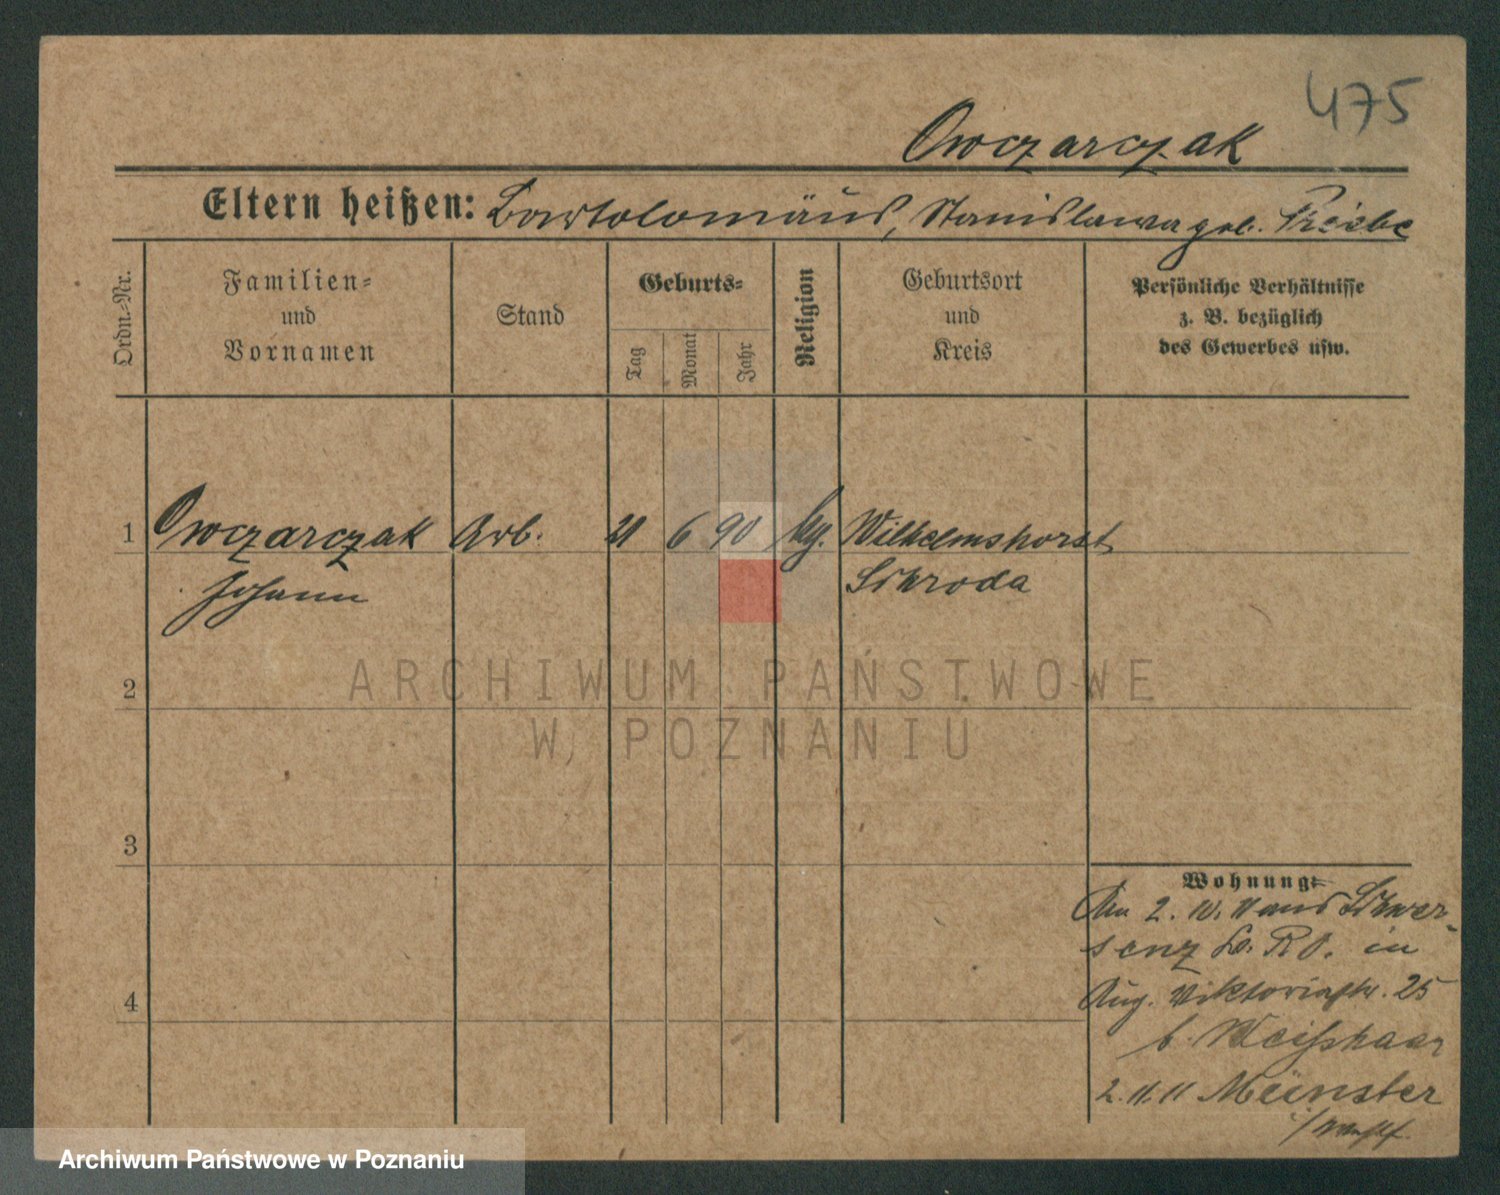 475
Owczarczak
Eltern heißen: Bartolomäus, Stanislawa geb.
Ordn.-Nr.
Familien- und Vornamen
Stand
Geburts-
Tag
Monat
Jahr
Religion
Geburtsort und Kreis
Persönliche Verhältnisse
z. B. bezüglich
des Gewerbes usw.
1 Owczarczak Arb. 21 6 90 kg. Wilhelmshorst
Johann Schroda
2
3
Wohnung:
Am 2. 10. 11 aus Schwer-
senz in
Aug. Viktoriastr. 25
4
b. Weißhaar
2.11.11 Münster
i/Westf.
ARCHIWUM PAŃSTWOWE
W POZNANIU
Archiwum Państwowe w Poznaniu